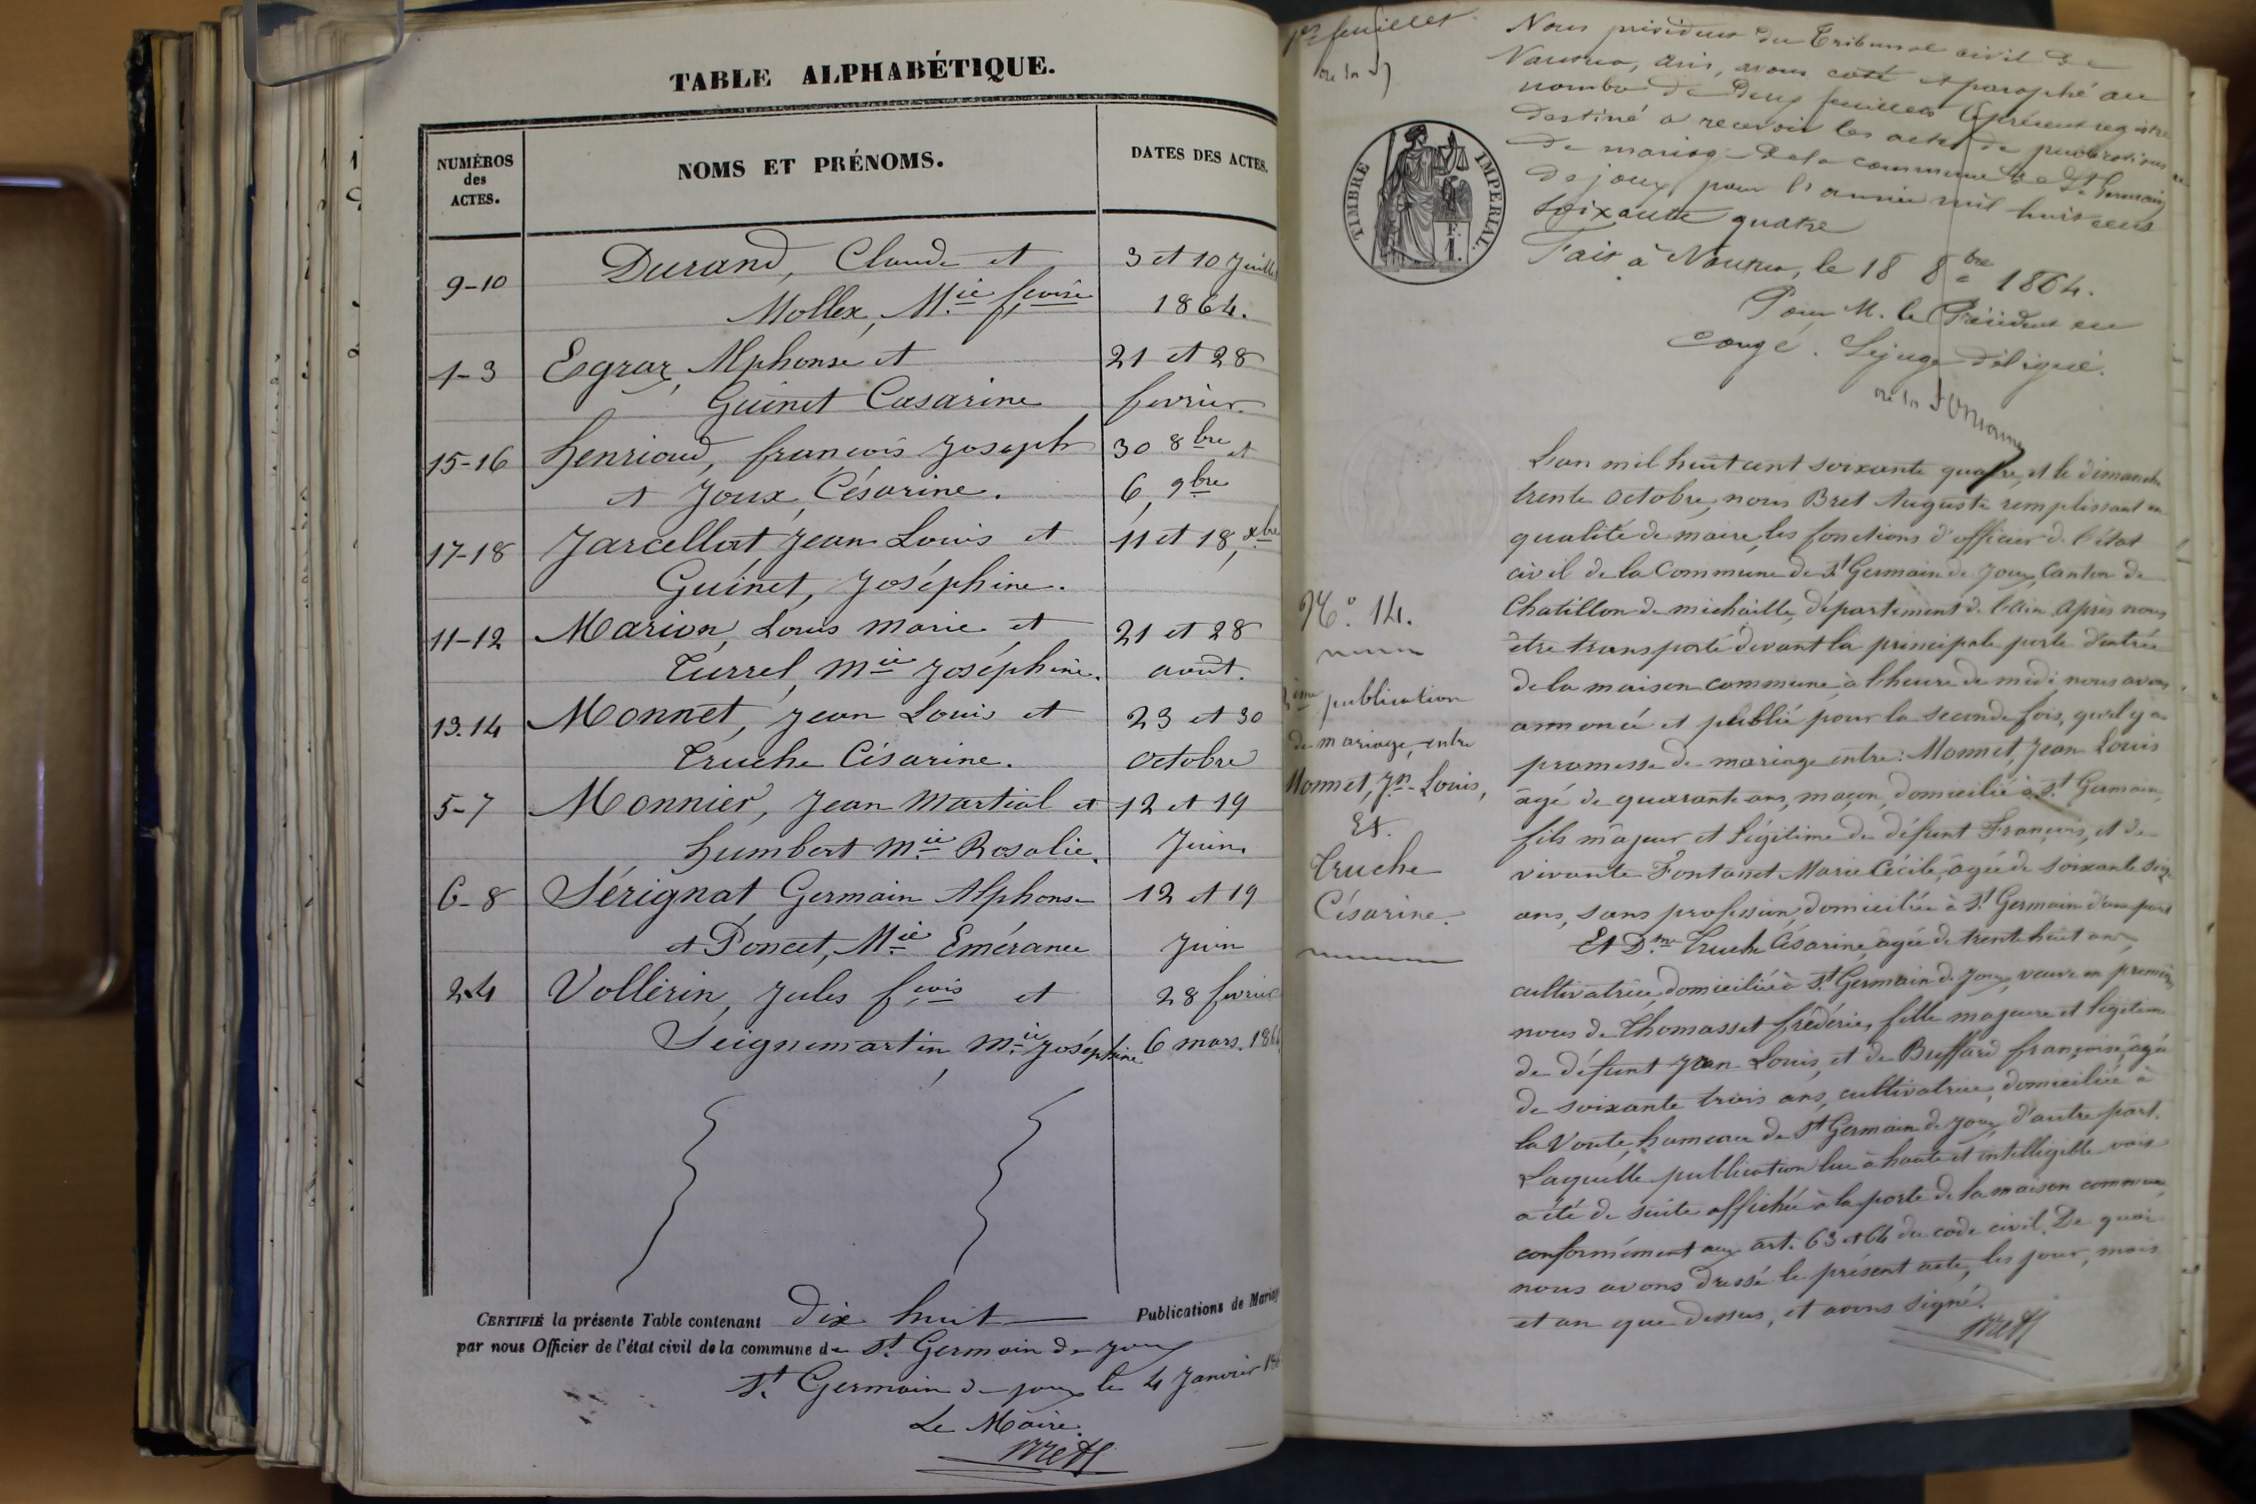 TABLE ALPHABÉTIQUE.
NUMÉROS des ACTES.
NOMS ET PRÉNOMS.
DATES DES ACTES.
9-10 Durand, Claude et 3 et 10 Juillet
Mollex, Mie fcoise 1864.
1-3 Egraz, Alphonse et 21 et 28
Guinet Césarine fevrier
15-16 henrioud, françois Joseph 30 8bre et
et Joux, Césarine. 6, 9bre
17-18 Jarcellat, Jean Louis et 11 et 18, xbre
Guinet, Joséphine.
11-12 Marion, Louis Marie et 21 et 28
Turrel, Mie Joséphine. août.
13.14 Monnet, Jean Louis et 23 et 30
Truche Césarine. octobre
5-7 Monnier, Jean Martial et 12 et 19
humbert Mie Rosalie. Juin
6-8 Sérignat Germain Alphonse 12 et 19
et Poncet, Mie Emérance Juin
2-4 Vollerin, Jules fcois et 28 fevrier
Seignemartin, Mie Joséphine 6 mars. 186
CERTIFIÉ la présente Table contenant dix huit Publications de Mariage
par nous Officier de l'état civil de la commune de St Germain de Joux
St Germain de joux le 4 Janvier 186
Le Maire.
Bret
1er feuillet
Nous président du Tribunal civil de
Nantua, Ain, avons coté et paraphé au
nombre de Deux feuillets le présent registre
destiné a recevoir les actes de publications
de mariage de la commune de St Germain
de joux, pour l'année mil huit cent
soixante quatre
Fait à Nantua, le 18 8bre 1864.
Pour M. le Président en
congé. Le juge délégué.
TIMBRE IMPÉRIAL.
N.o 14.
2ème publication
de mariage, entre
Monnet, Jn-Louis,
Et.
Truche
Césarine.
L'an mil huit cent soixante quatre, et le dimanche
trente octobre, nous Bret Auguste remplissant en
qualité de maire, les fonctions d'officier de l'état
civil de la Commune de St Germain de Joux, Canton de
Chatillon de michaille, département de l'ain, après nous
être transporté devant la principale porte d'entrée
de la maison commune, à l'heure de midi, nous avons
annoncé et publié pour la seconde fois, qu'il y a
promesse de mariage entre: Monnet, Jean Louis
âgé de quarante ans, maçon, domicilié à St Germain,
fils majeur et légitime de défunt François, et de
vivante Fontanet Marie Cécile, âgée de soixante seize
ans, sans profession, domiciliée à St Germain d'une part
Et Dme Truche Césarine, âgée de trente huit ans,
cultivatrice, domiciliée à St Germain de Joux, veuve en première
noces de Thomasset fréderic, fille majeure et légitime
de défunt Jean Louis, et de Buffard françoise, âgée
de soixante trois ans, cultivatrice, domiciliée à
la Voute, hameau de St Germain de Joux, d'autre part.
Laquelle publication lue à haute et intelligible voix
a été de suite affichée à la porte de la maison commune,
conformément aux art. 63 et 64 du code civil. De quoi
nous avons dressé le présent acte, les jour, mois
et an que dessus, et avons signé.
Bret